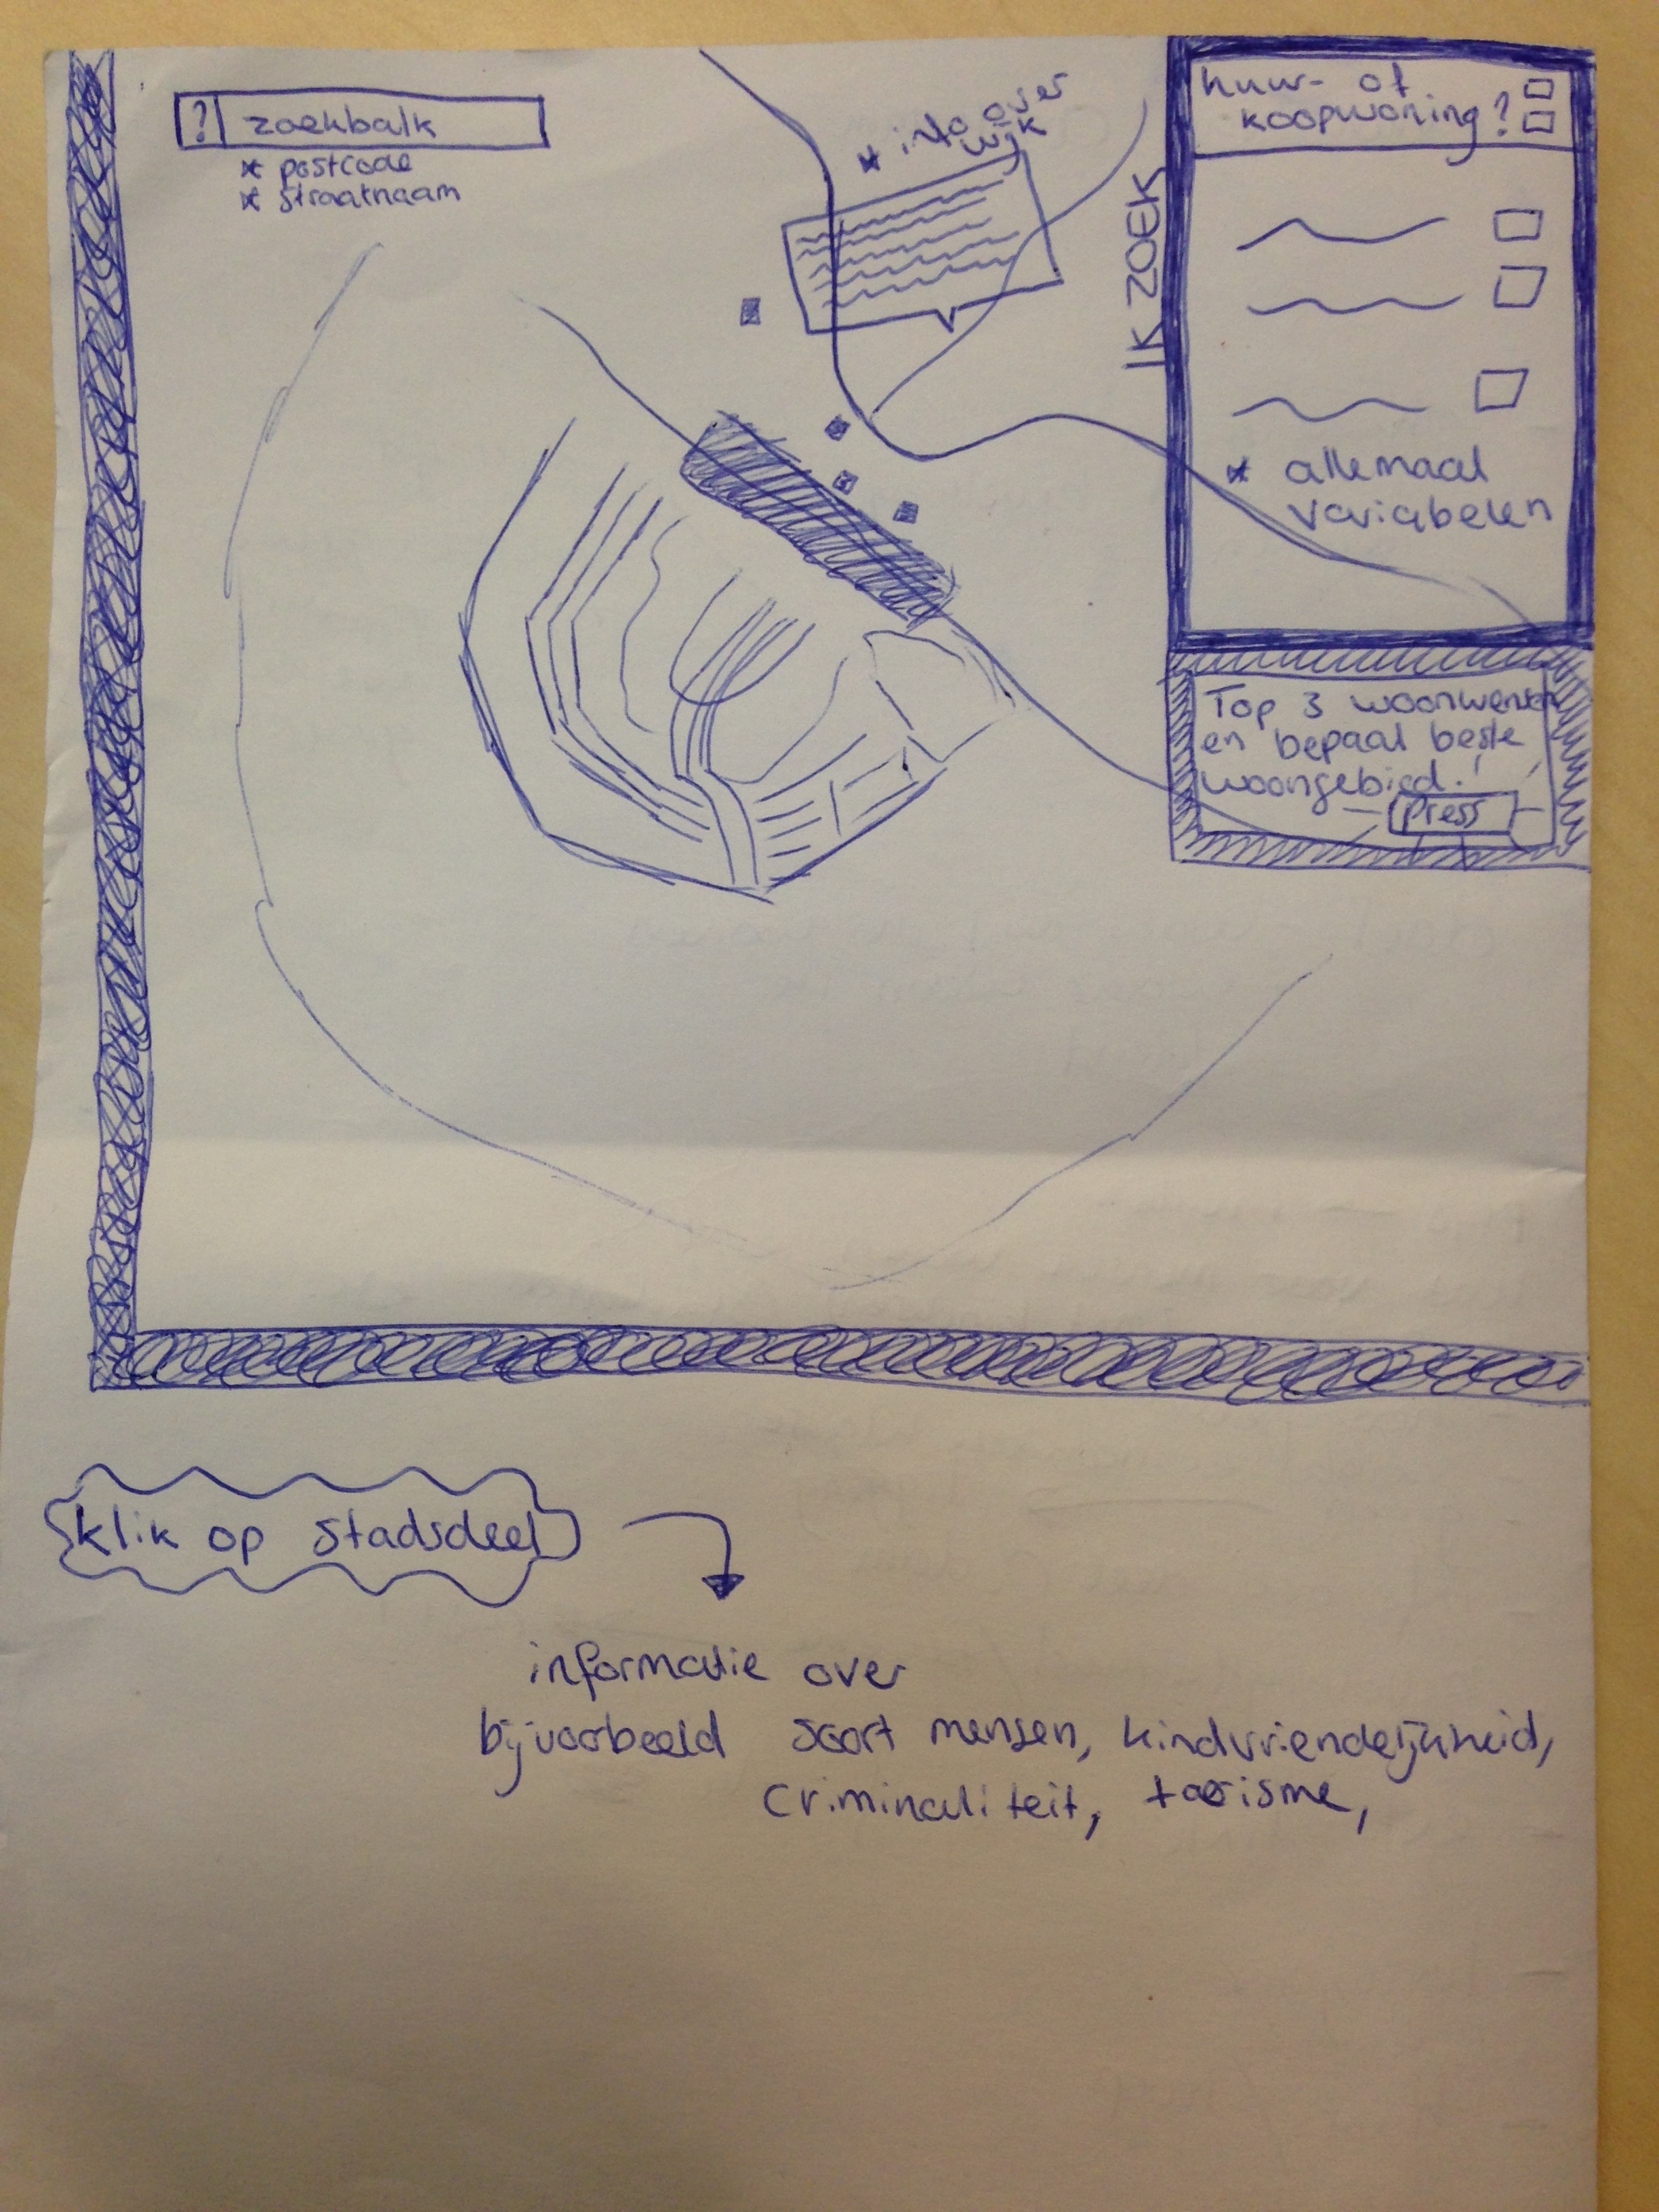 ? zoekbalk
* postcode
* straatnaam
* info over
wijk
IK ZOEK
huur- of
koopwoning?
* allemaal
variabelen
Top 3 woonwensen
en bepaal beste
woongebied!
Press
klik op stadsdeel
informatie over
bijvoorbeeld soort mensen, kindvriendelijkheid,
criminaliteit, toerisme,